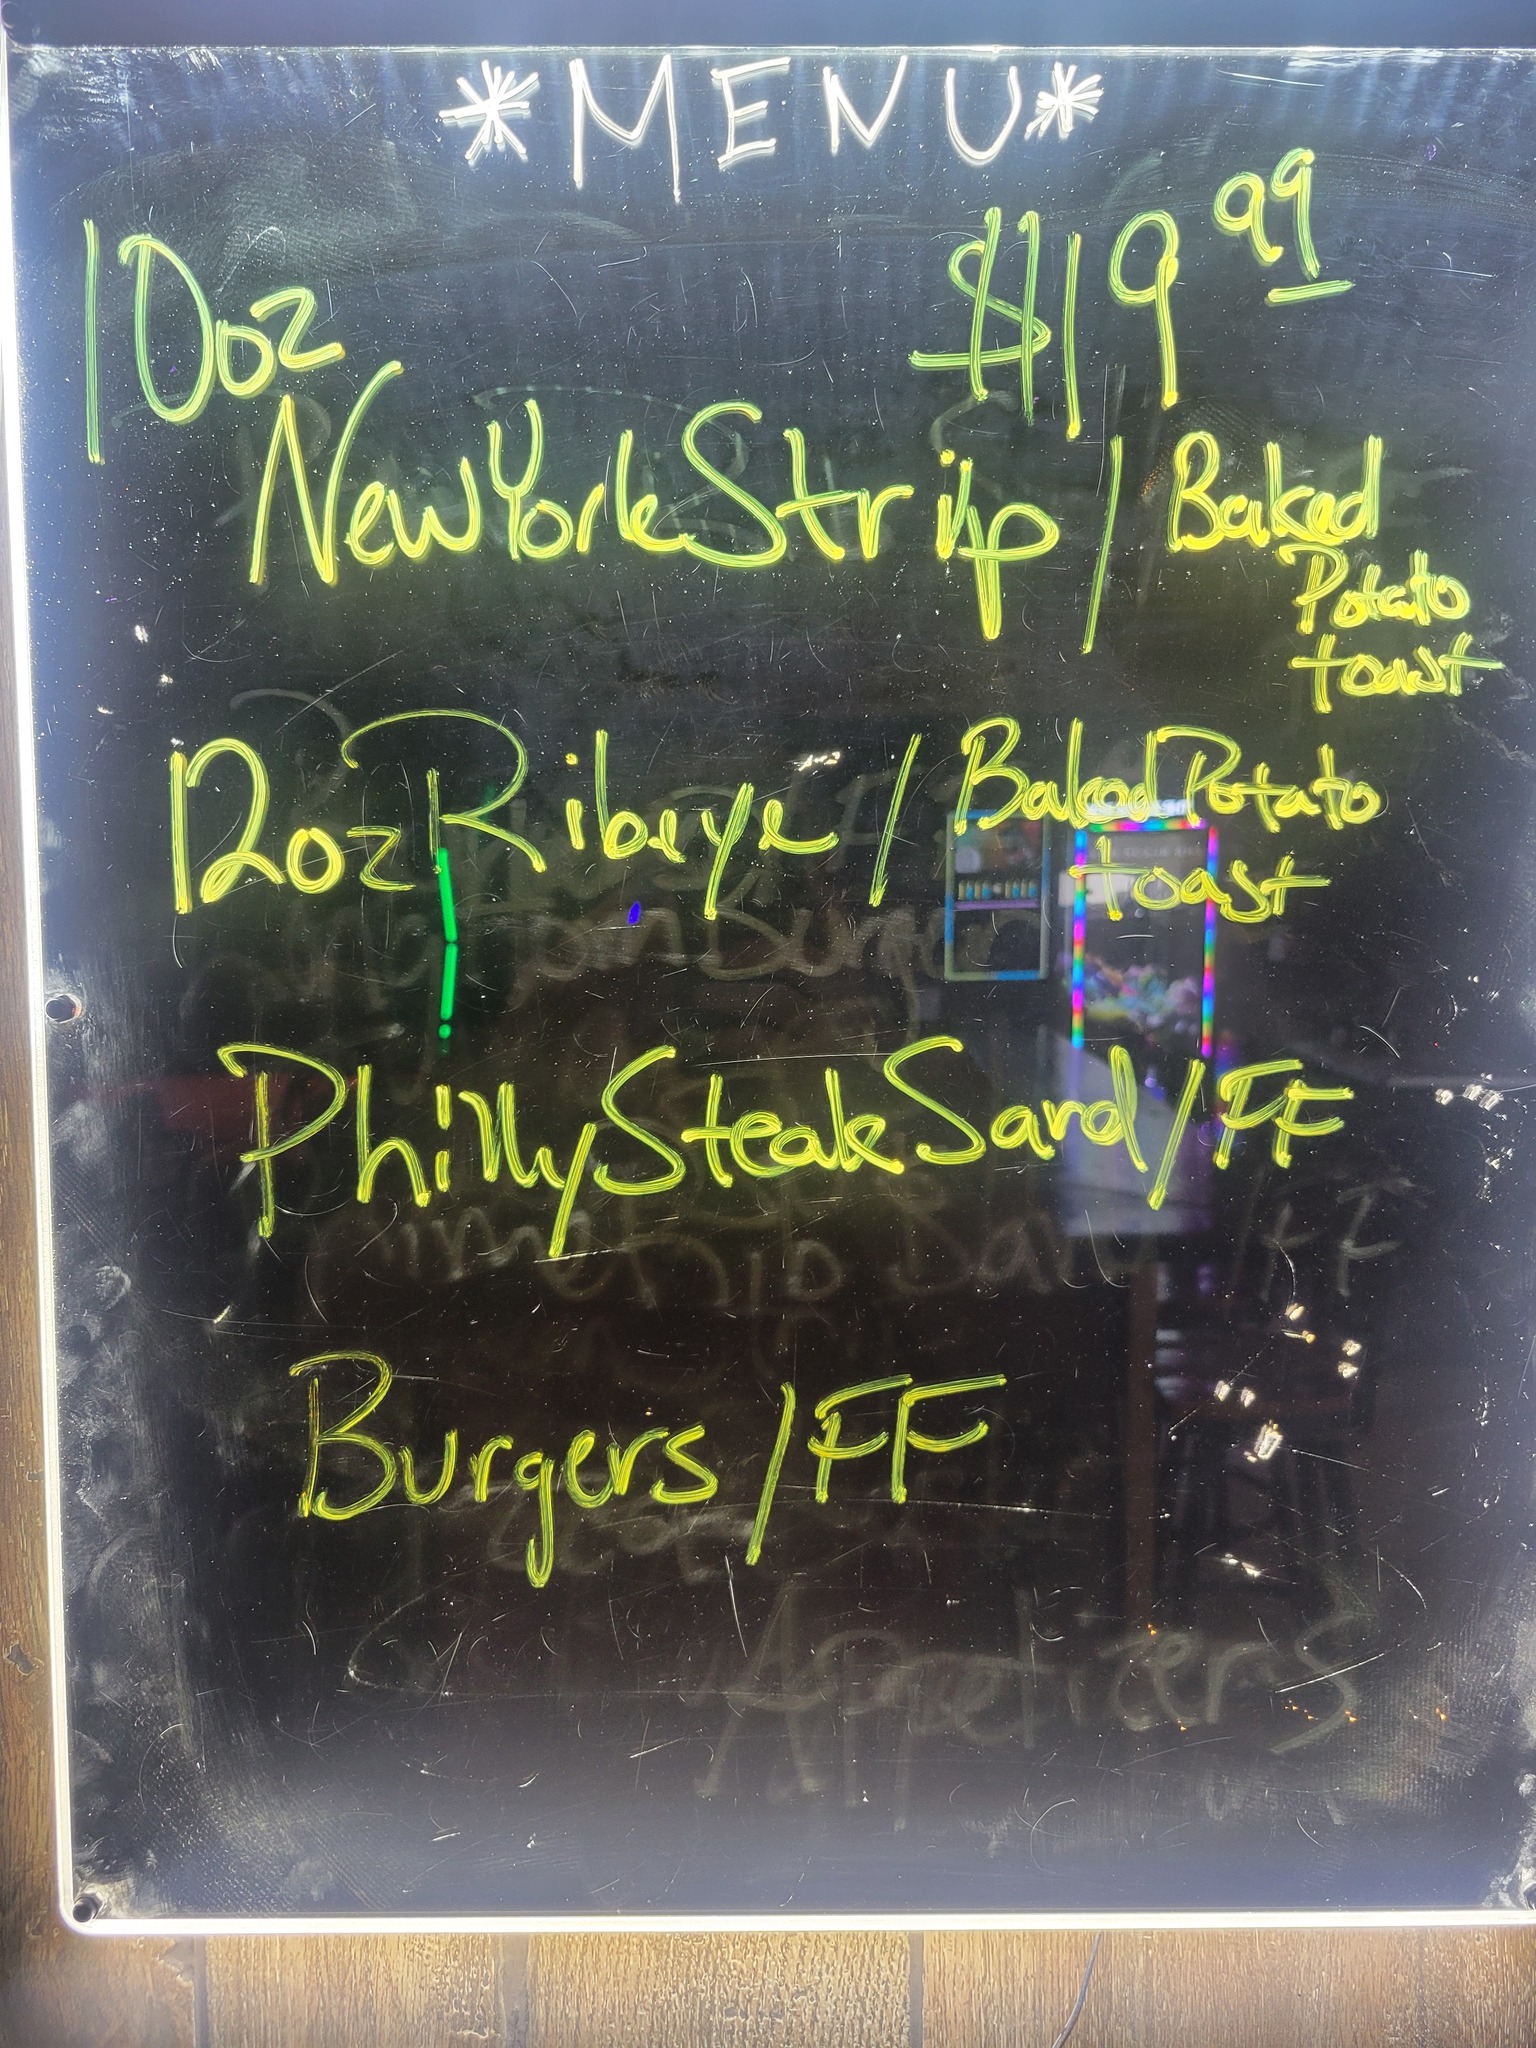 *MENU*
10oz $19 99
New York Strip / Baked
Potato
toast
12oz Ribeye / Baked Potato
toast
Philly Steak Sand / FF
Burgers / FF
Appetizers